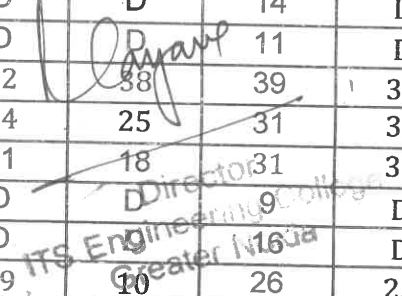 D 14
D D 11 D
2 38 39 3
4 25 31 3
1 18 31 3
D D 9 D
D 9 16 D
9 10 26 2
Director
ITS Engineering College
Greater Noida